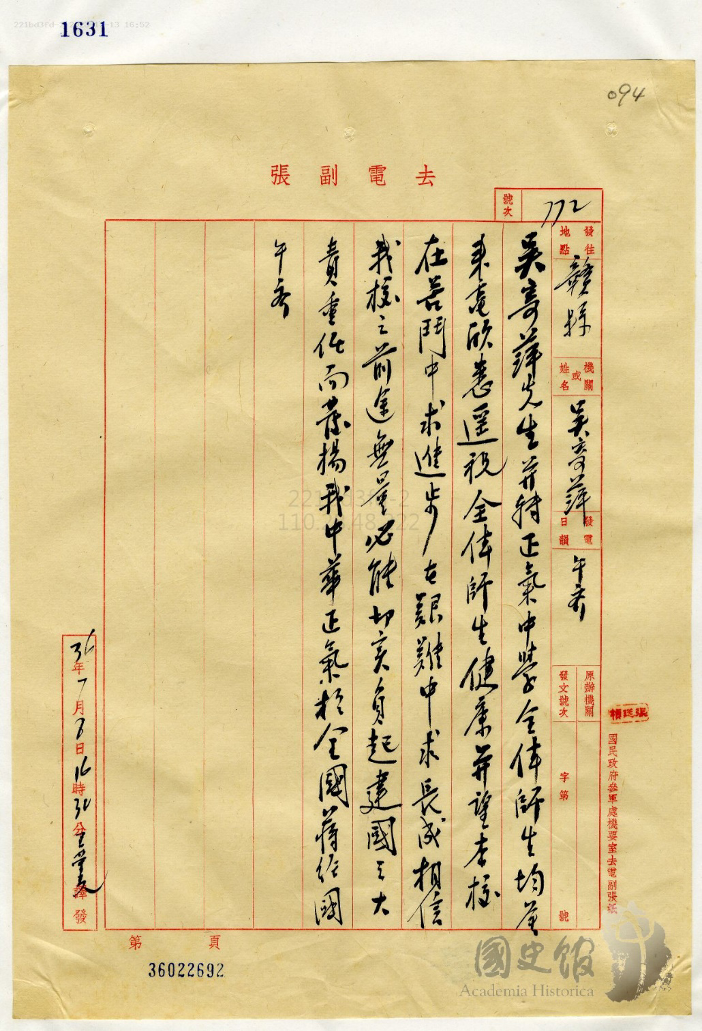 1631
094
去電副張
號次 772
發往地點 贛縣
機關或姓名 吳寄萍
發電日韻 午齊
原辦機關
發文號次 字第 號
吳寄萍先生并轉正氣中學全体師生均鑒
來電欣悉遥祝全体師生健康并望本校
在苦鬥中求進步在艱難中求長成相信
我校之前途無量必能切实負起建國之大
責重任而發揚我中華正氣於全國蔣經國
午齊
36年7月8日16時30分 譯發
國民政府參軍處機要室去電副張紙
第 頁
36022692
國史館
Academia Historica